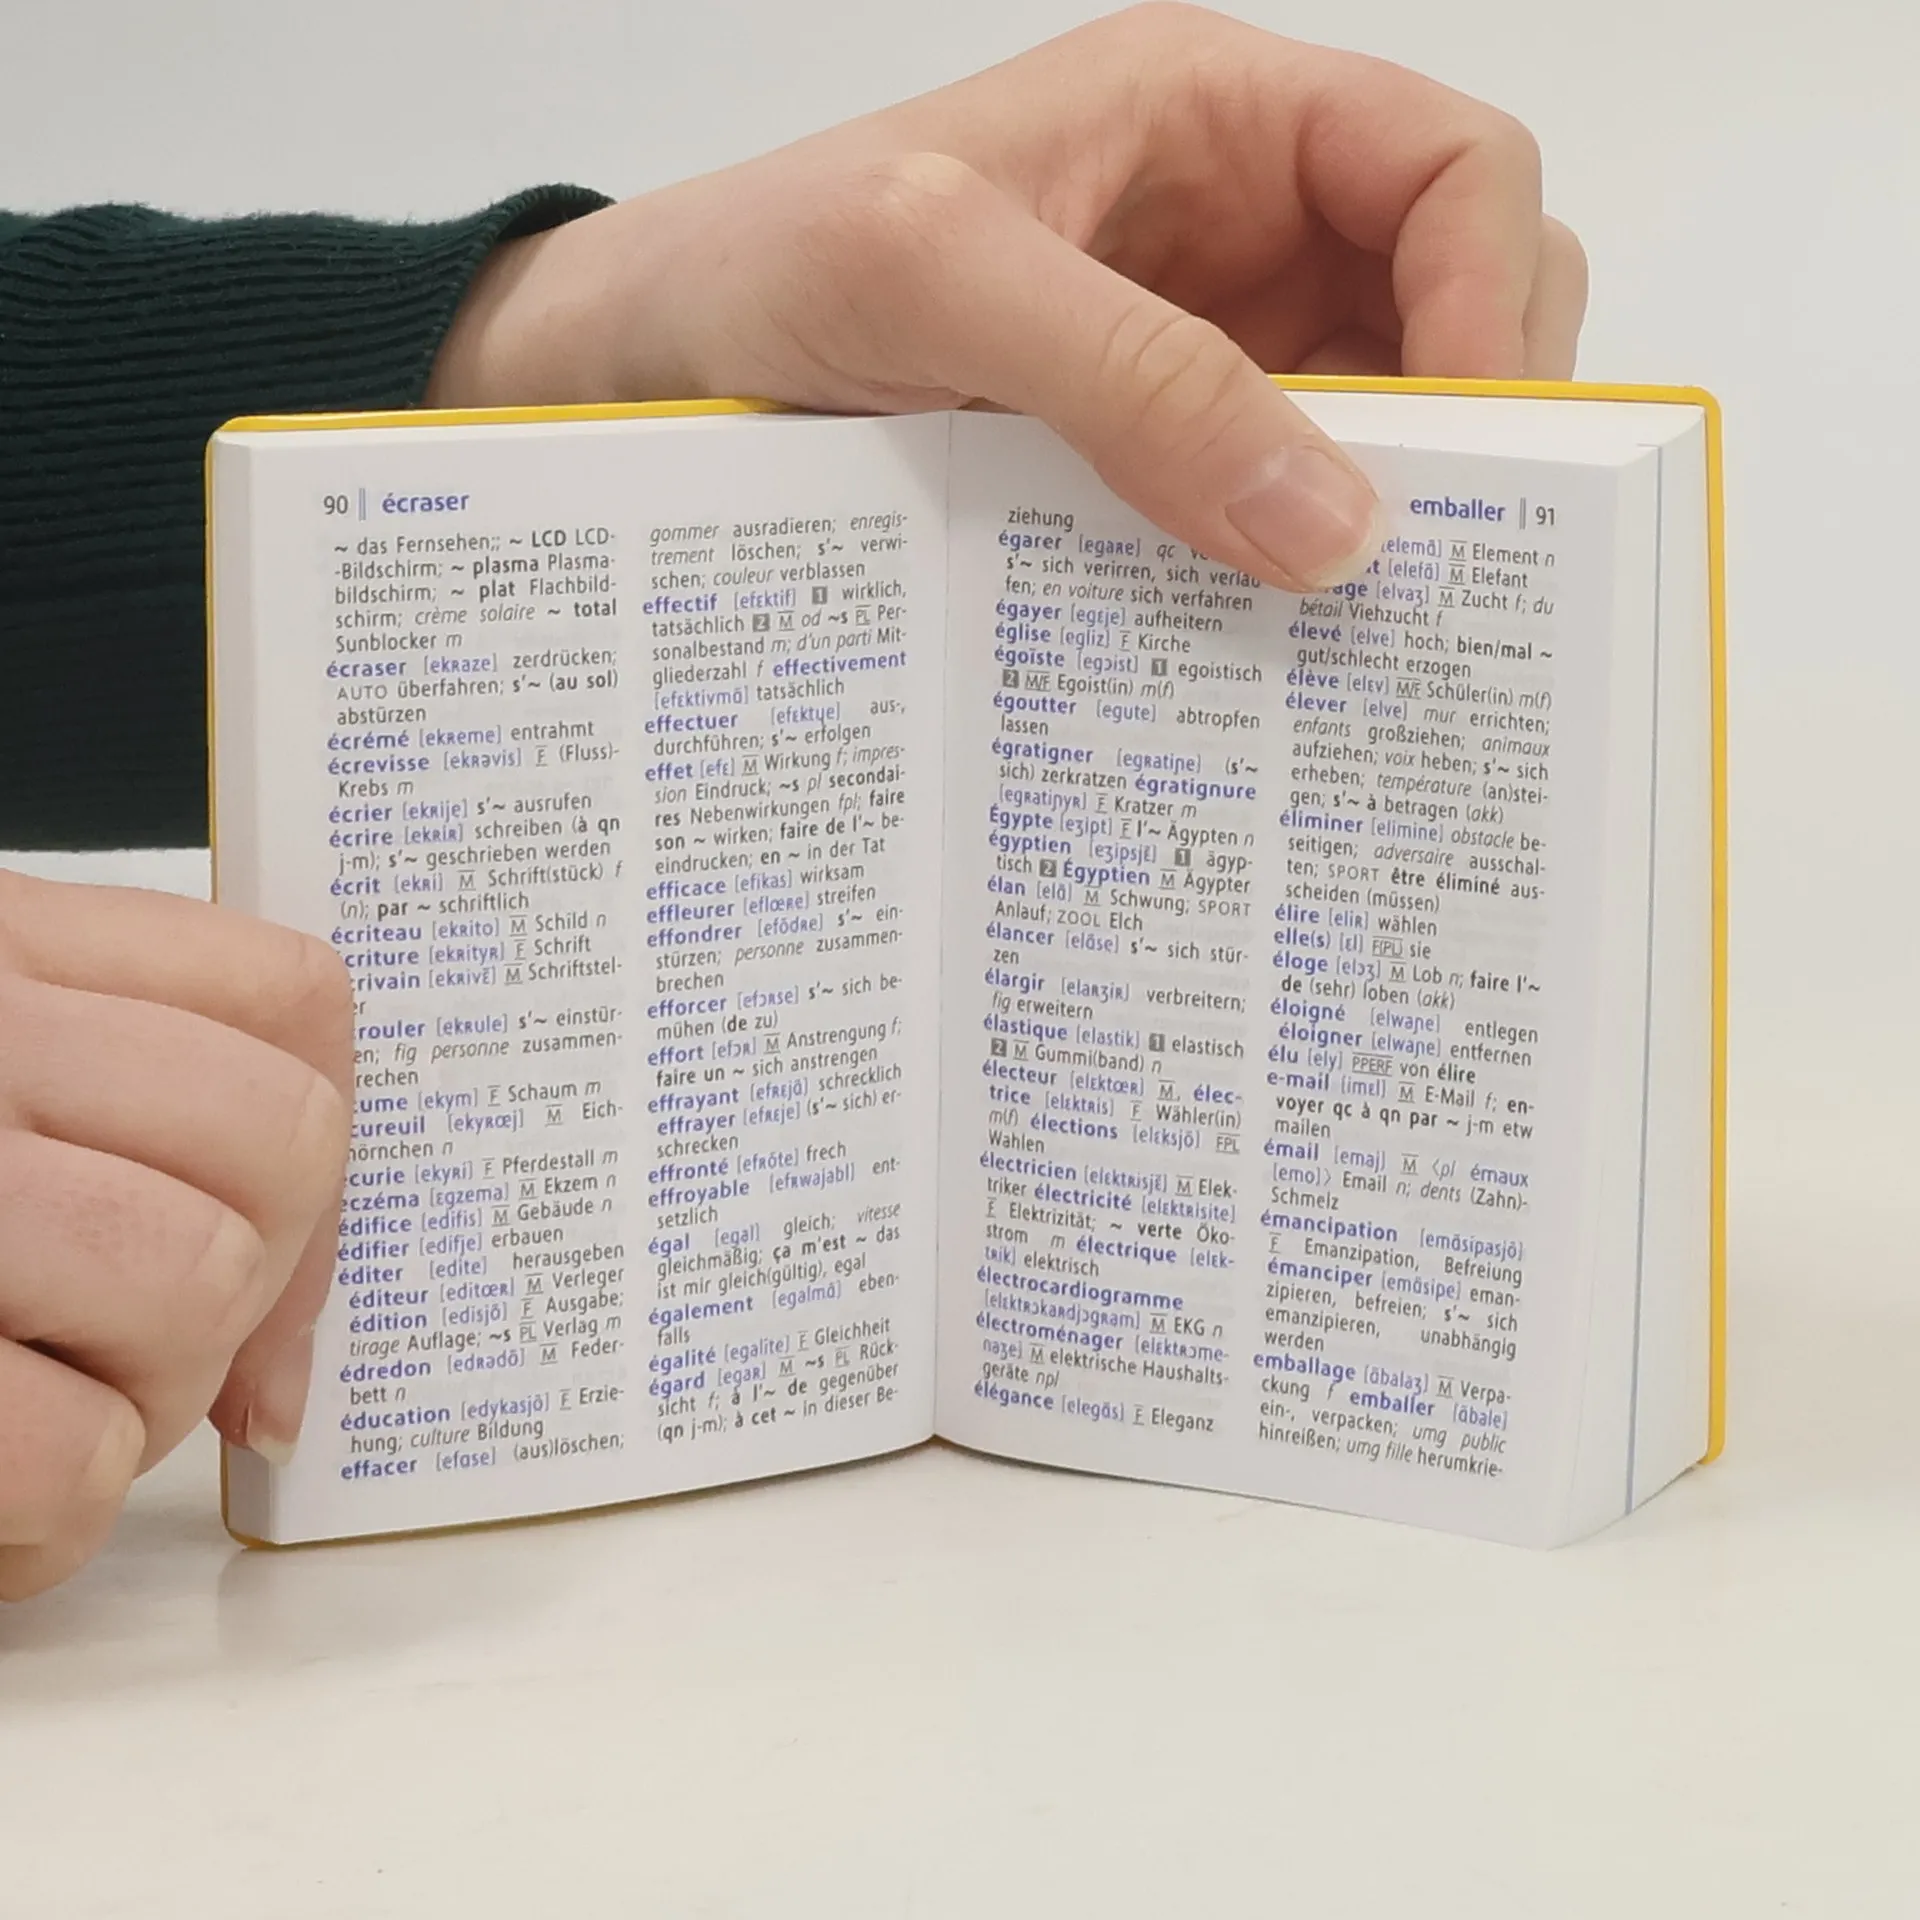 90 écraser
~ das Fernsehen;; ~ LCD LCD-
-Bildschirm; ~ plasma Plasma-
bildschirm; ~ plat Flachbild-
schirm; crème solaire ~ total
Sunblocker m
écraser [ekʀaze] zerdrücken;
AUTO überfahren; s'~ (au sol)
abstürzen
écrémé [ekʀeme] entrahmt
écrevisse [ekʀəvis] F (Fluss)-
Krebs m
écrier [ekʀije] s'~ ausrufen
écrire [ekʀiʀ] schreiben (à qn
j-m); s'~ geschrieben werden
écrit [ekʀi] M Schrift(stück) f
(n); par ~ schriftlich
écriteau [ekʀito] M Schild n
criture [ekʀityʀ] F Schrift
crivain [ekʀivɛ̃] M Schriftstel-
er
rouler [ekʀule] s'~ einstür-
en; fig personne zusammen-
rechen
ume [ekym] F Schaum m
cureuil [ekyʀœj] M Eich-
hörnchen n
curie [ekyʀi] F Pferdestall m
eczéma [ɛgzema] M Ekzem n
édifice [edifis] M Gebäude n
édifier [edifje] erbauen
éditer [edite] herausgeben
éditeur [editœʀ] M Verleger
édition [edisjõ] F Ausgabe;
tirage Auflage; ~s PL Verlag m
édredon [edʀədõ] M Feder-
bett n
éducation [edykasjõ] F Erzie-
hung; culture Bildung
effacer [efase] (aus)löschen;
gommer ausradieren; enregis-
trement löschen; s'~ verwi-
schen; couleur verblassen
effectif [efɛktif] 1 wirklich,
tatsächlich 2 M od ~s PL Per-
sonalbestand m; d'un parti Mit-
gliederzahl f effectivement
[efɛktivmã] tatsächlich
effectuer [efɛktɥe] aus-,
durchführen; s'~ erfolgen
effet [efɛ] M Wirkung f; impres-
sion Eindruck; ~s pl secondai-
res Nebenwirkungen fpl; faire
son ~ wirken; faire de l'~ be-
eindrucken; en ~ in der Tat
efficace [efikas] wirksam
effleurer [eflœʀe] streifen
effondrer [efõdʀe] s'~ ein-
stürzen; personne zusammen-
brechen
efforcer [efɔʀse] s'~ sich be-
mühen (de zu)
effort [efɔʀ] M Anstrengung f;
faire un ~ sich anstrengen
effrayant [efʀɛjã] schrecklich
effrayer [efʀɛje] (s'~ sich) er-
schrecken
effronté [efʀõte] frech
effroyable [efʀwajabl] ent-
setzlich
égal [egal] gleich; vitesse
gleichmäßig; ça m'est ~ das
ist mir gleich(gültig), egal
également [egalmã] eben-
falls
égalité [egalite] F Gleichheit
égard [egaʀ] M ~s PL Rück-
sicht f; à l'~ de gegenüber
(qn j-m); à cet ~ in dieser Be-
emballer 91
ziehung
égarer [egaʀe] qc
s'~ sich verirren, sich verlau
fen; en voiture sich verfahren
égayer [egɛje] aufheitern
église [egliz] F Kirche
égoïste [egɔist] 1 egoistisch
2 M/F Egoist(in) m(f)
égoutter [egute] abtropfen
lassen
égratigner [egʀatiɲe] (s'~
sich) zerkratzen égratignure
[egʀatiɲyʀ] F Kratzer m
Égypte [eʒipt] F l'~ Ägypten n
égyptien [eʒipsjɛ̃] 1 ägyp-
tisch 2 Égyptien M Ägypter
élan [elã] M Schwung; SPORT
Anlauf; ZOOL Elch
élancer [elãse] s'~ sich stür-
zen
élargir [elaʀʒiʀ] verbreitern;
fig erweitern
élastique [elastik] 1 elastisch
2 M Gummi(band) n
électeur [elɛktœʀ] M, élec-
trice [elɛktʀis] F Wähler(in)
m(f) élections [elɛksjõ] FPL
Wahlen
électricien [elɛktʀisjɛ̃] M Elek-
triker électricité [elɛktʀisite]
F Elektrizität; ~ verte Öko-
strom m électrique [elɛk-
tʀik] elektrisch
électrocardiogramme
[elɛktʀɔkaʀdjɔgʀam] M EKG n
électroménager [elɛktʀɔme-
naʒe] M elektrische Haushalts-
geräte npl
élégance [elegãs] F Eleganz
[elemã] M Element n
t [elefã] M Elefant
age [elvaʒ] M Zucht f; du
bétail Viehzucht f
élevé [elve] hoch; bien/mal ~
gut/schlecht erzogen
élève [elɛv] M/F Schüler(in) m(f)
élever [elve] mur errichten;
enfants großziehen; animaux
aufziehen; voix heben; s'~ sich
erheben; température (an)stei-
gen; s'~ à betragen (akk)
éliminer [elimine] obstacle be-
seitigen; adversaire ausschal-
ten; SPORT être éliminé aus-
scheiden (müssen)
élire [eliʀ] wählen
elle(s) [ɛl] F(PL) sie
éloge [elɔʒ] M Lob n; faire l'~
de (sehr) loben (akk)
éloigné [elwaɲe] entlegen
éloigner [elwaɲe] entfernen
élu [ely] PPERF von élire
e-mail [imɛl] M E-Mail f; en-
voyer qc à qn par ~ j-m etw
mailen
émail [emaj] M ⟨pl émaux
[emo]⟩ Email n; dents (Zahn)-
Schmelz
émancipation [emãsipasjõ]
F Emanzipation, Befreiung
émanciper [emãsipe] eman-
zipieren, befreien; s'~ sich
emanzipieren, unabhängig
werden
emballage [ãbalaʒ] M Verpa-
ckung f emballer [ãbale]
ein-, verpacken; umg public
hinreißen; umg fille herumkrie-